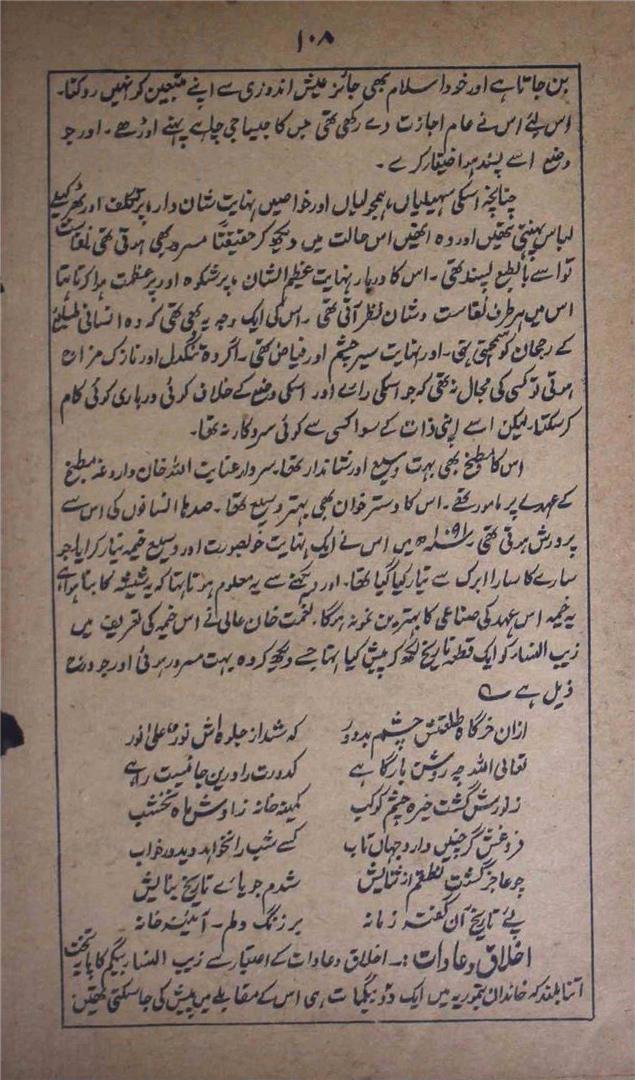 ۱۰۸
بن جاتا ہے اور خود اسلام بھی جائز عیش اندوزی سے اپنے متبعین کو نہیں روکتا۔
اس لئے اس نے عام اجازت دے رکھی تھی جس کا جیسا جی چاہے پہنے اوڑھے۔ اور جو
وضع اسے پسند ہو اختیار کرے۔
چنانچہ اسکی سہیلیاں، ہمجولیاں اور خواصیں نہایت شان دار، پر تکلف اور بھڑکیلے
لباس پہنتی تھیں اور وہ انھیں اس حالت میں دیکھ کر حقیقتاً مسرور بھی ہوتی تھی نفاست
تو اسے بالطبع پسند تھی۔ اس کا دربار نہایت عظیم الشان، پر شکوہ اور پر عظمت ہوا کرتا تھا
اس میں ہر طرف نفاست و شان نظر آتی تھی۔ اس کی ایک وجہ یہ بھی تھی کہ وہ انسانی طبائع
کے رجحان کو سمجھتی تھی۔ اور نہایت سیر چشم اور فیاض تھی۔ اگر وہ تنگدل اور نازک مزاج
ہوتی تو کسی کی مجال نہ تھی کہ جو اسکی رائے اور اسکی وضع کے خلاف کوئی درباری کوئی کام
کر سکتا۔ لیکن اسے اپنی ذات کے سوا کسی سے کوئی سروکار نہ تھا۔
اس کا مطبخ بھی بہت وسیع اور شاندار تھا۔ سردار عنایت اللہ خان داروغہ مطبخ
کے عہدے پر مامور تھے۔ اس کا دسترخوان بھی بہتر وسیع تھا۔ صدہا انسانوں کی اس سے
پرورش ہوتی تھی۔ ۱۰۹۱ھ میں اس نے ایک نہایت خوبصورت اور وسیع خیمہ تیار کرایا جو
سارے کا سارا ابرک سے تیار کیا گیا تھا۔ اور دیکھنے سے یہ معلوم ہوتا تھا کہ یہ شیشہ کا بنا ہوا ہے
یہ خیمہ اس عہد کی صناعی کا بہترین نمونہ ہوگا۔ نعمت خان عالی نے اس خیمہ کی تعریف میں
زیب النساء کو ایک قطعہ تاریخ لکھ کر پیش کیا تھا جسے دیکھ کر وہ بہت مسرور ہوئی اور جو درج
ذیل ہے
ازان خرگاہ طلعتش چشم بددور کہ شد از جلوہ اش نورٌ علیٰ نور
تعالی اللہ چہ روشن بارگاہے کدورت را درین جا نیست راہے
ز نورش گشت خیرہ چشم کوکب کمینہ خانہ زادش ماہ نخشب
فروغش گر چنیں دارد جہاں تاب کسے شب را نخواہد دید در خواب
چو عاجز گشت نطقم از ثنایش شدم جویائے تاریخ بنایش
پئے تاریخ آن گفتہ زمانہ بر زنگ دلم۔ آئینہ خانہ
اخلاق و عادات :۔ اخلاق و عادات کے اعتبار سے زیب النساء بیگم کا پایہ تخت
اتنا بلند کہ خاندان تیموریہ میں ایک دو بیگمات ہی اس کے مقابلے میں پیش کی جا سکتی تھیں۔